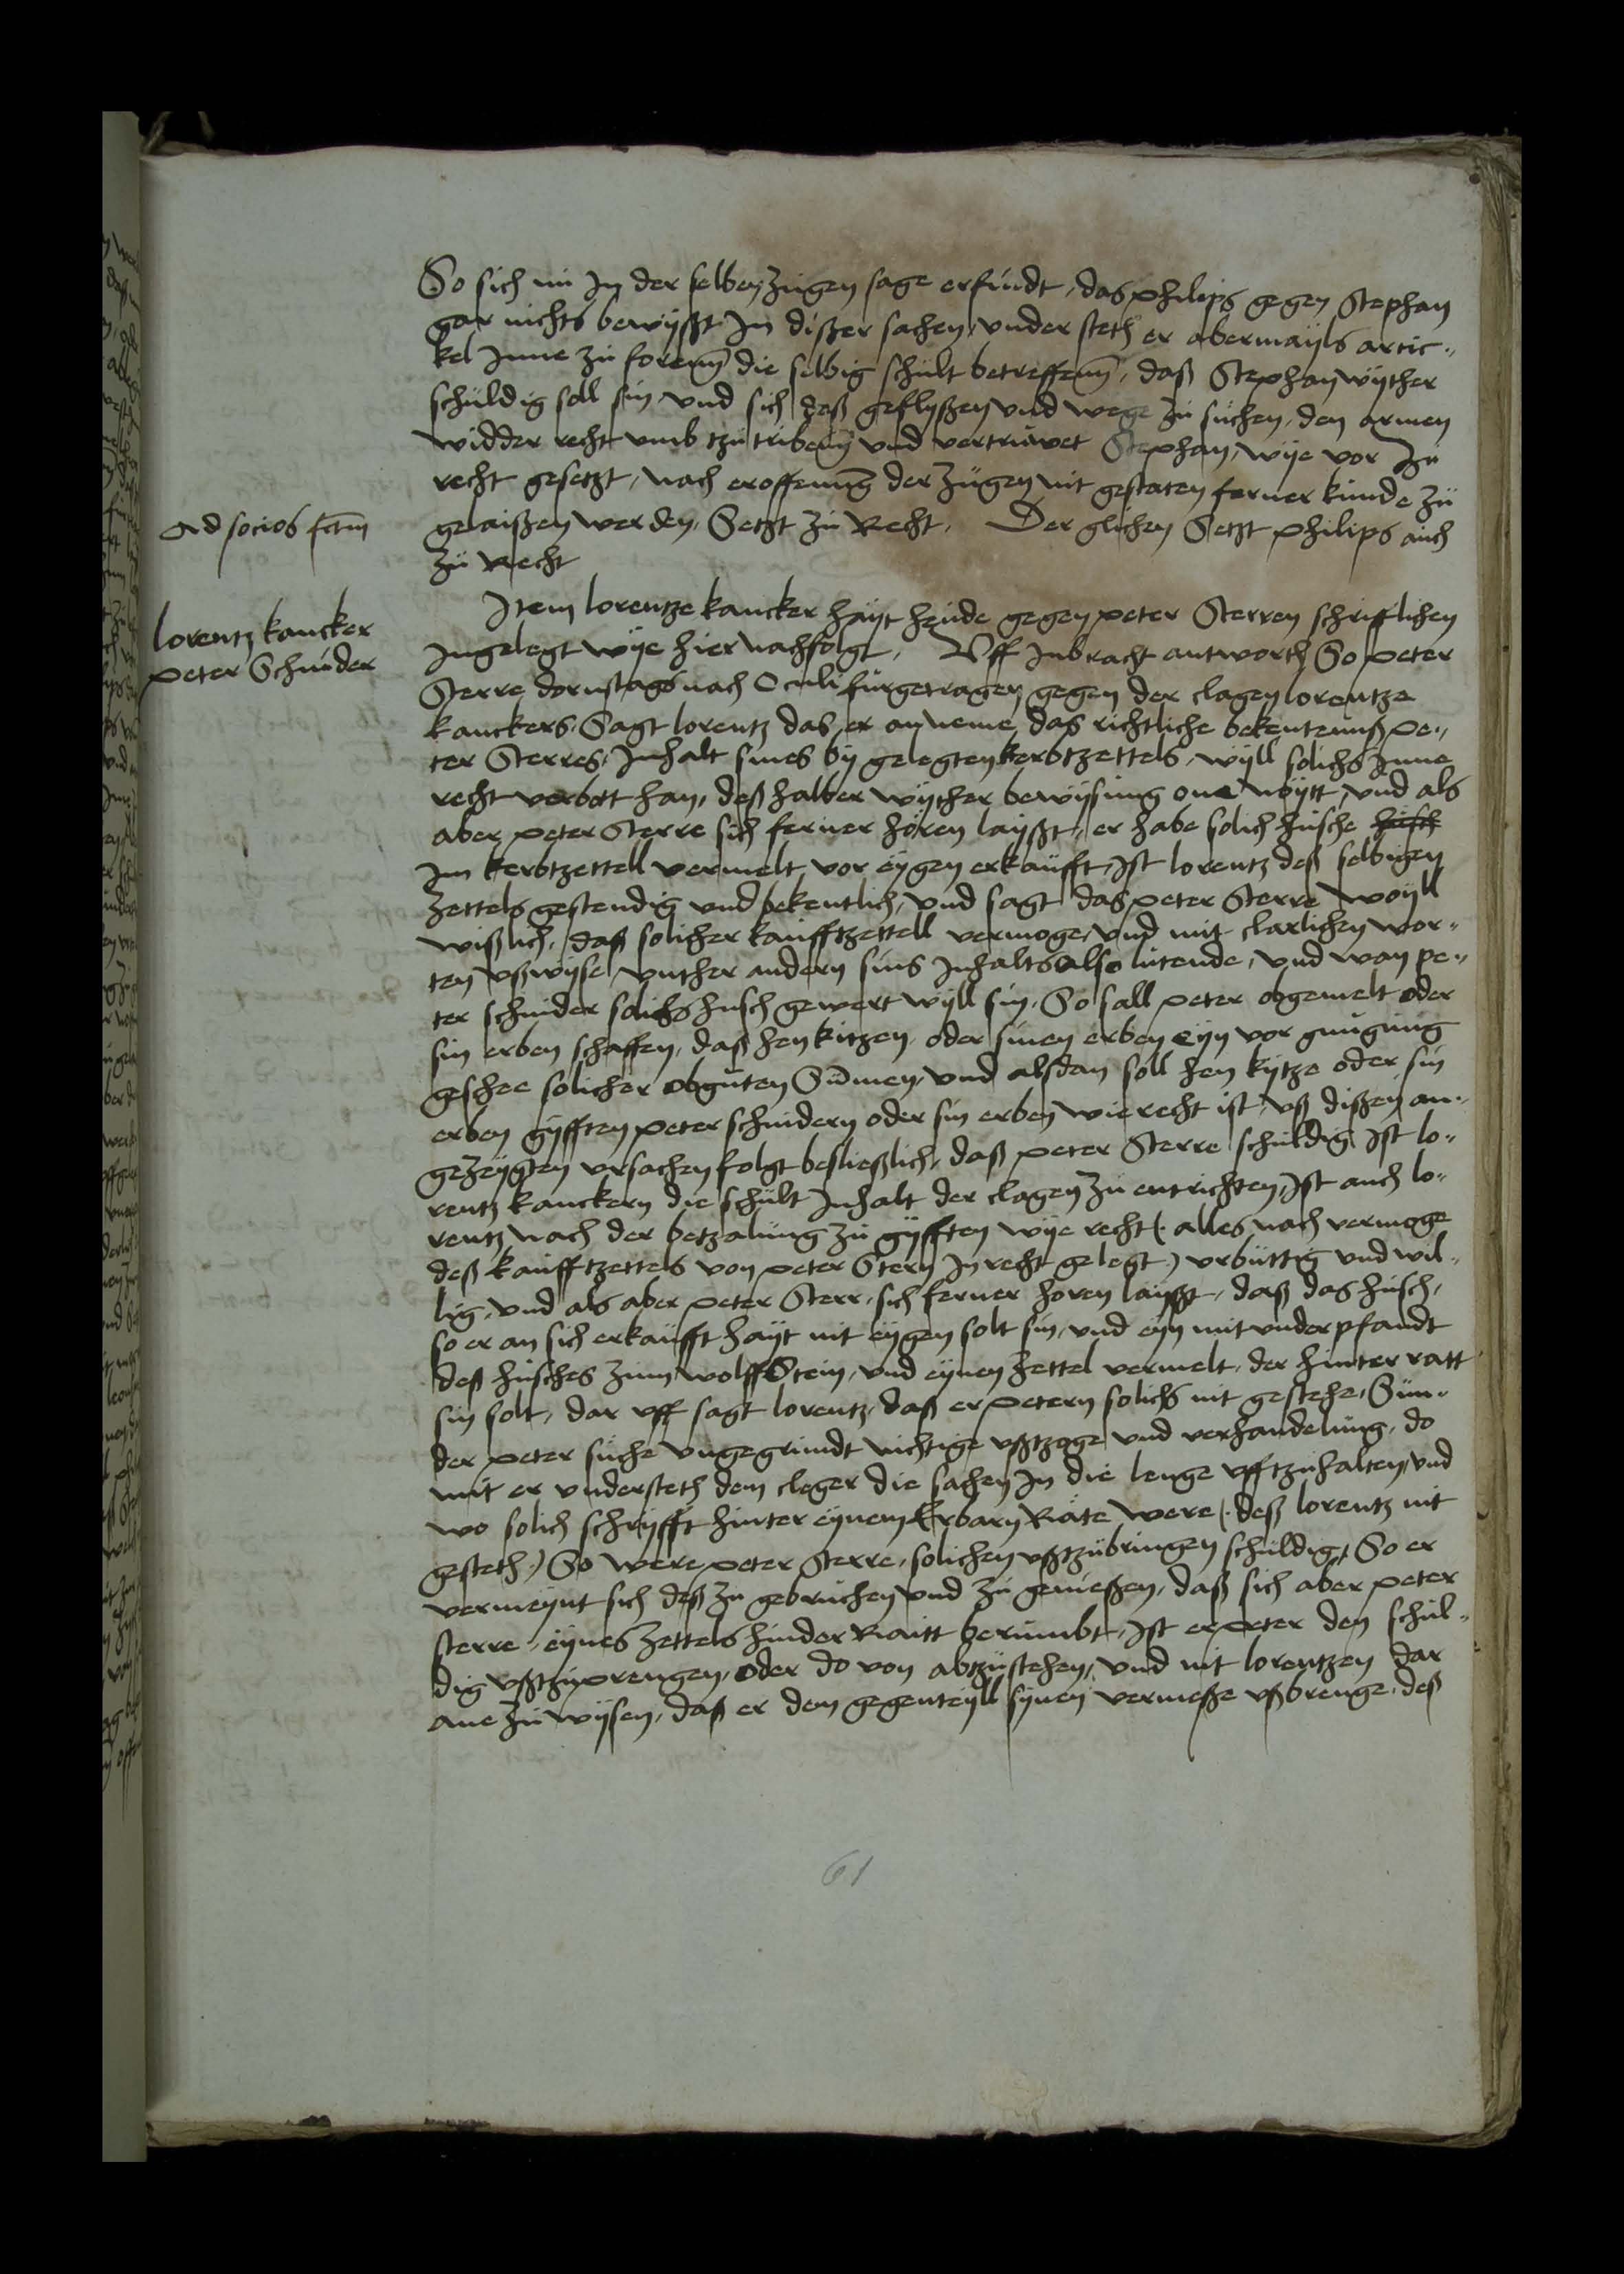 So sich nu In der selben zugen sage erfindt, das philips gegen Stephan
gar nichts bewyßt In disßer sachen, vnder steth er abermayls artic„
kel Inne zu foren̄ die selbig schult betreffen̄, daß Stephan wyther
schuldig soll sin vnd sich deß geflyßen vnd wege zu suchen, den armen
widder recht vmb tzu triben̄ vnd vertruwet Stephan, wye vor In
recht gesetzt, nach eroffenung der zugen nit gestaten ferner kunde zu
Ad socios fc̄m
gelaißen werden, Setzt zu Recht. Der glichen Setzt philips auch
zu Recht
Lorentz kancker
peter Schnider
Item lorentze kancker hayt heude gegen peter Sterren schrifftlichen
Ingelegt wye hier nachfolgt. Vff Inbracht antworth So peter
Sterre dornstags nach Oculi furgetragen gegen der clagen lorentze
kanckers, Sagt lorentz das er an neme das richtliche bekentenuß pe„
ter Sterres, Inhalt sines by gelegten kerbtzettels, wyll solichs Inne
recht verbott han, deß halber wyther bewysung one noytt, vnd als
aber peter Sterre sich ferner horen layßt, er habe solich husche husch
Im kerbtzettell vermelt vor eygen erkaufft, Ist lorentz deß selbigen
zettels gestendig vnd bekentlich, vnd sagt das peter Sterre woyll
wißlich, daß solicher kauifftzettell vermoge, vnd mit clarlichen wor„
ten vßwyse, vnther andern sins Inhalts also lutende, vnd wan pe„
ter schnider solichs husch gewert wyll sin, So sall peter obgemelt oder
sin erben schaffen, daß hen kitzen oder sinen erben eyn vor gnugung
geschee solicher obguten Sūmen, vnd alsdan soll hen kytze oder sin
erben gyfften peter schnidern oder sin erben wie recht ist, vß dißen an„
gezeygten vrsachen folgt besließlich, daß peter Sterre schuldig Ist lo„
rentz kanckern die schult Inhalt der clagen zu entrichten, Ist auch lo„
rentz nach der betzalung zu gyfften wye recht (alles nach vermoge
deß kauifftzettels von peter Stern In recht gelegt) vrbuttig vnd wil„
lig, vnd als aber peter Sterr, sich ferner horen layßt, daß das husch,
so er an sich erkaufft hayt nit eygen solt sin, vnd eyn mit vnderpfandt
deß husches zum wolffstein, vnd eynen zettel vermelt, der hinter ratt
sin solt, dar vff sagt lorentz, daß er petern solichs nit gestehe, Sun„
der peter suche vngegrundt nichtige vßtzoge vnd verhandelung, do
mit er vndersteth dem cleger die sachen In die lenge vfftzuhalten, vnd
wo solich schryfft hinter eynem Erbarn Rate were (deß lorentz nit
gesteth) So were peter Sterre, solichen vßtzubringen schuldig, So er
vermeynt sich deß zu gebruchen vnd zu genießen, daß sich aber peter
sterre, eynes zettels hinder Raitt berumbt, Ist er peter den schul„
dig vßtzuprengen, oder do von abtzustehen, vnd nit lorentzen dar
ane zu wysen, daß er dem gegenteyll synen vermeße vßbrenge, deß
61